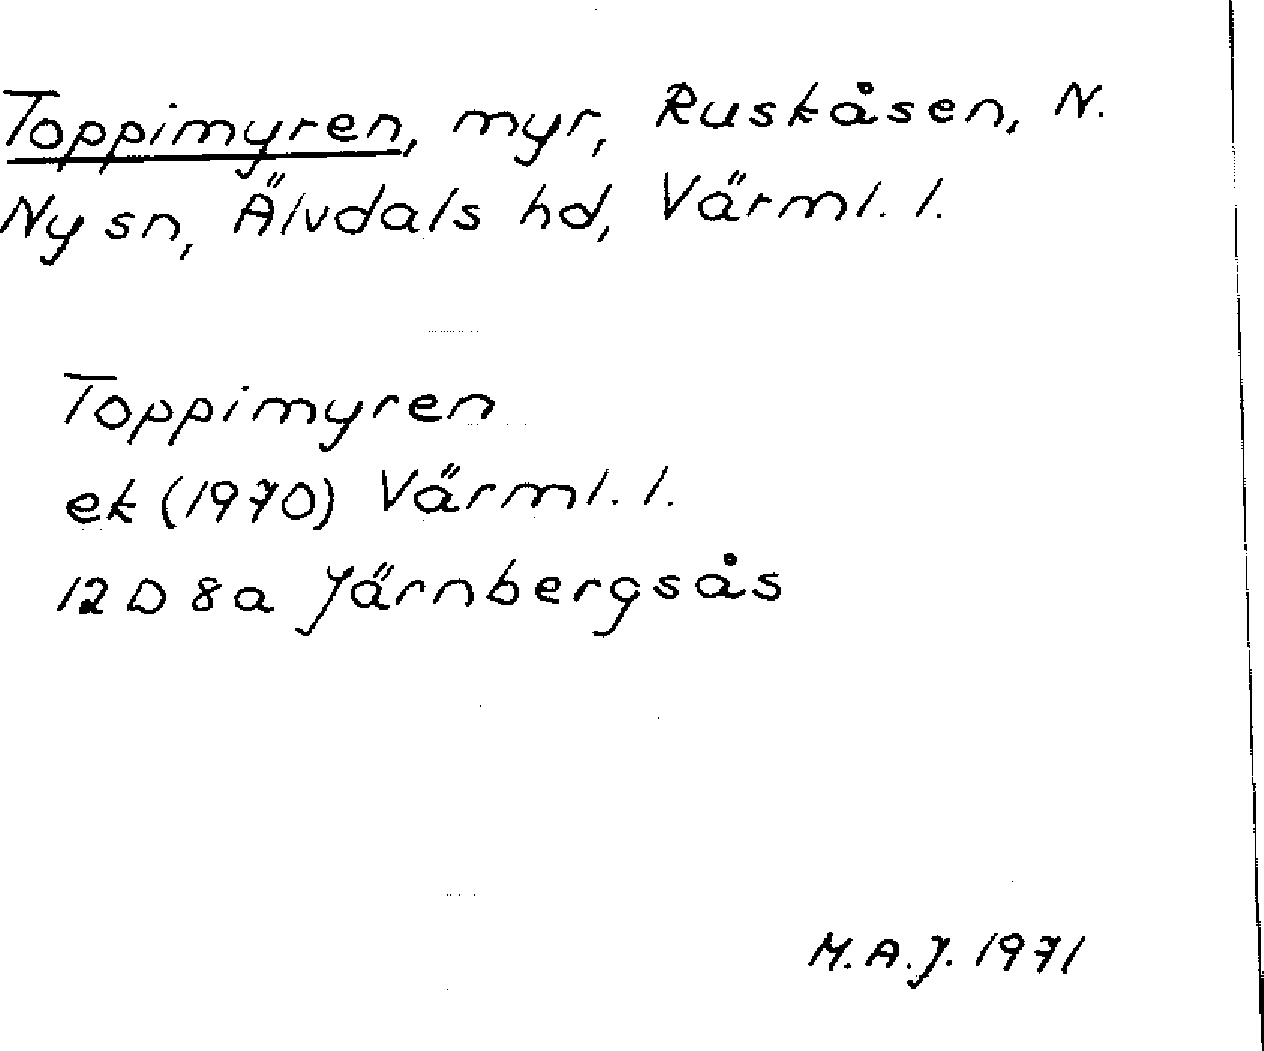 Toppimyren, myr, Ruskåsen, N.
Ny sn, Älvdals hd, Värml. l.
Toppimyren
ek (1970) Värml. l.
12 D 8a Järnbergsås
M.A.J. 1971